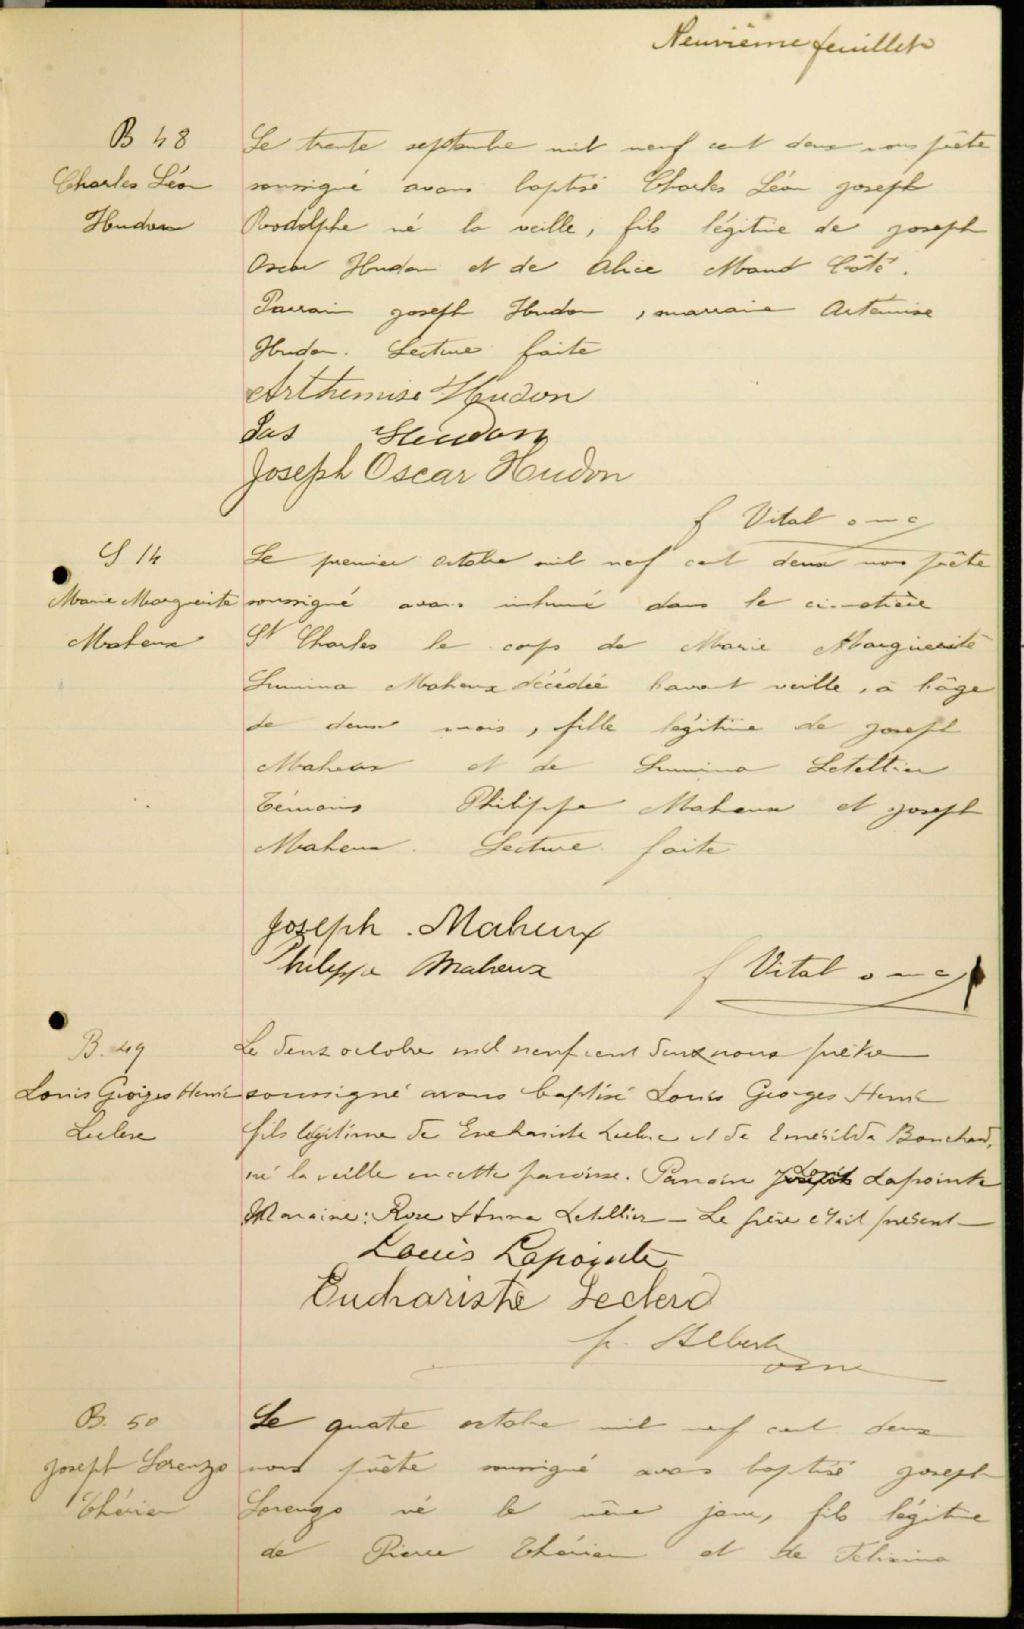 Neuvième feuillet
B 48
Charles Léon
Hudon
Le trente septembre mil neuf cent deux nous prêtre
soussigné avons baptisé Charles Léon joseph
Rodolphe né la veille, fils légitime de joseph
Oscar Hudon et de Alice Maud Côté.
Parrain joseph Hudon, marraine Artémise
Hudon. Lecture faite
Arthemise Hudon
Jos Hudon
Joseph Oscar Hudon
f Vital o m c
S 14
Marie Marguerite
Maheux
Le premier octobre mil neuf cent deux nous prêtre
soussigné avons inhumé dans le cimetière
St Charles le corps de Marie Marguerite
Lumina Maheux décédée l'avant veille, à l'âge
de deux mois, fille légitime de joseph
Maheux et de Lumina Letellier
Témoins Philippe Maheux et joseph
Maheux. Lecture faite
Joseph Maheux
Philippe Maheux
f Vital o m c
B. 49
Louis Georges Henri
Leclerc
Le deux octobre mil neuf cent deux nous prêtre
soussigné avons baptisé Louis Georges Henri
fils légitime de Euchariste Leclerc et de Emérilda Bouchard,
né la veille en cette paroisse. Parrain Louis Lapointe
Marraine: Rose Anna Letellier — Le père était présent —
Louis Lapointe
Euchariste Leclerc
fr. Albert
omc
B. 50
joseph Lorenzo
Thérien
Le quatre octobre mil neuf cent deux
nous prêtre soussigné avons baptisé joseph
Lorenzo né le même jour, fils légitime
de Pierre Thérien et de Felixina